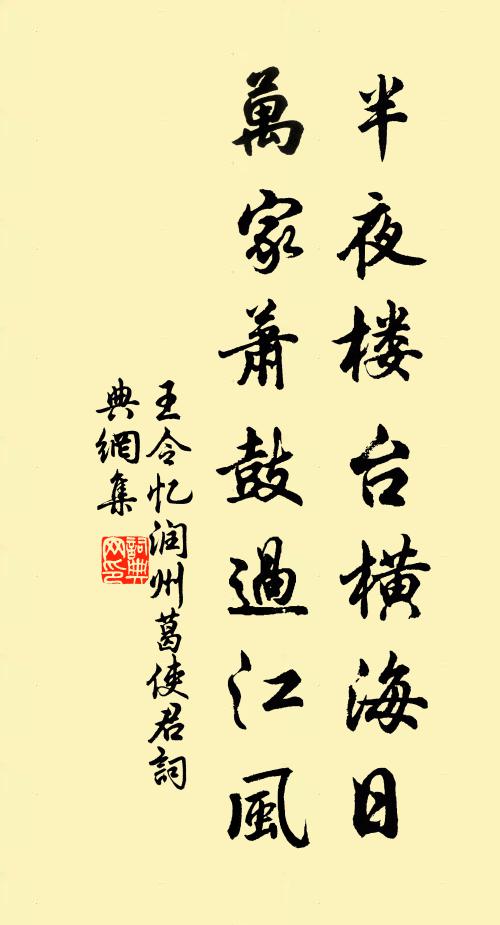 半夜楼台横海日
萬家蕭鼓過江風
王令忆润州葛使君詞
典網集
詞典
网印